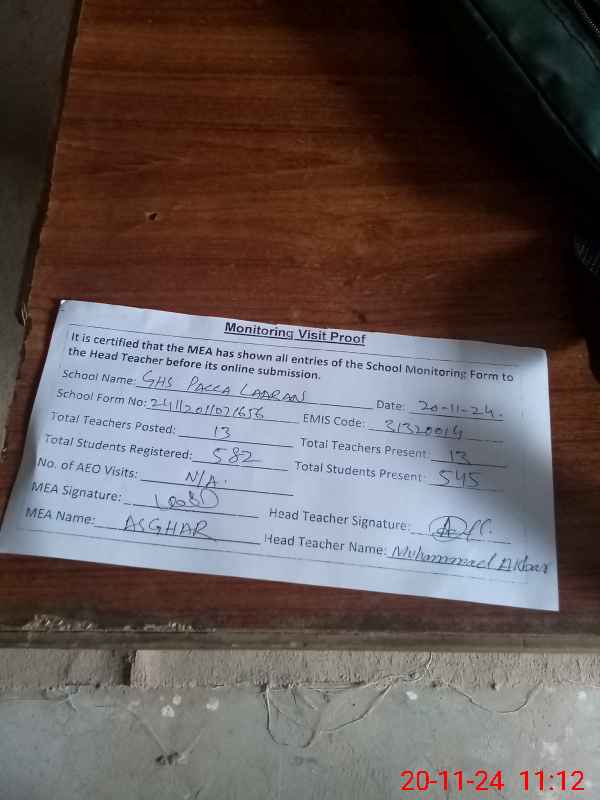 Monitoring Visit Proof
It is certified that the MEA has shown all entries of the School Monitoring Form to
the Head Teacher before its online submission.
School Name: GHS PACCA LAARAN Date: 20-11-24.
School Form No: EMIS Code: 31320014
Total Teachers Posted: 13 Total Teachers Present: 13
Total Students Registered: 582 Total Students Present: 545
No. of AEO Visits: N/A.
MEA Signature: Head Teacher Signature:
MEA Name: ASGHAR Head Teacher Name: Muhammad Akbar
20-11-24 11:12